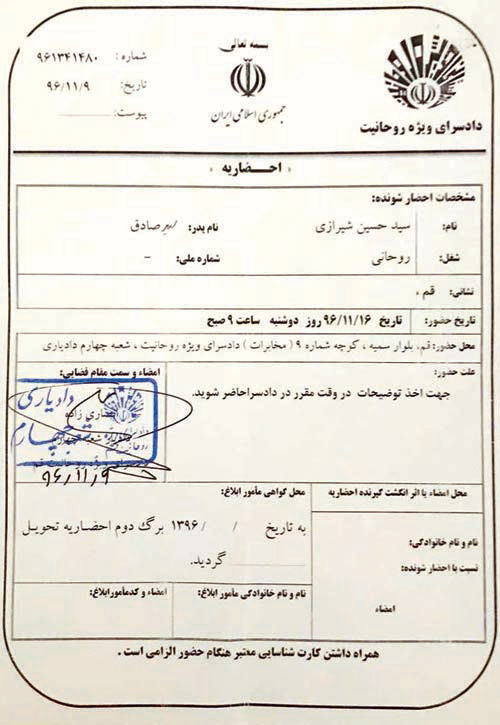 بسمه تعالی
جمهوری اسلامی ایران
دادسرای ویژه روحانیت
شماره: ۹۶۱۳۴۱۴۸۰
تاریخ: ۹۶/۱۱/۹
پیوست:
« احضاریه »
مشخصات احضار شونده:
نام: سید حسین شیرازی نام پدر: سید صادق
شغل: روحانی شماره ملی: –
نشانی: قم ،
تاریخ حضور: تاریخ ۹۶/۱۱/۱۶ روز دوشنبه ساعت ۹ صبح
محل حضور: قم، بلوار سمیه ، کوچه شماره ۹ ( مخابرات ) دادسرای ویژه روحانیت ، شعبه چهارم دادیاری
علت حضور:
جهت اخذ توضیحات در وقت مقرر در دادسرا حاضر شوید.
امضاء و سمت مقام قضایی:
دادیاری
شعبه چهارم
۹۶/۱۱/۹
محل امضاء یا اثر انگشت گیرنده احضاریه
نام و نام خانوادگی:
نسبت با احضار شونده:
امضاء
محل گواهی مأمور ابلاغ:
به تاریخ / / ۱۳۹۶ برگ دوم احضاریه تحویل
گردید.
نام و نام خانوادگی مأمور ابلاغ:
امضاء و کدمأمورابلاغ:
همراه داشتن کارت شناسایی معتبر هنگام حضور الزامی است .